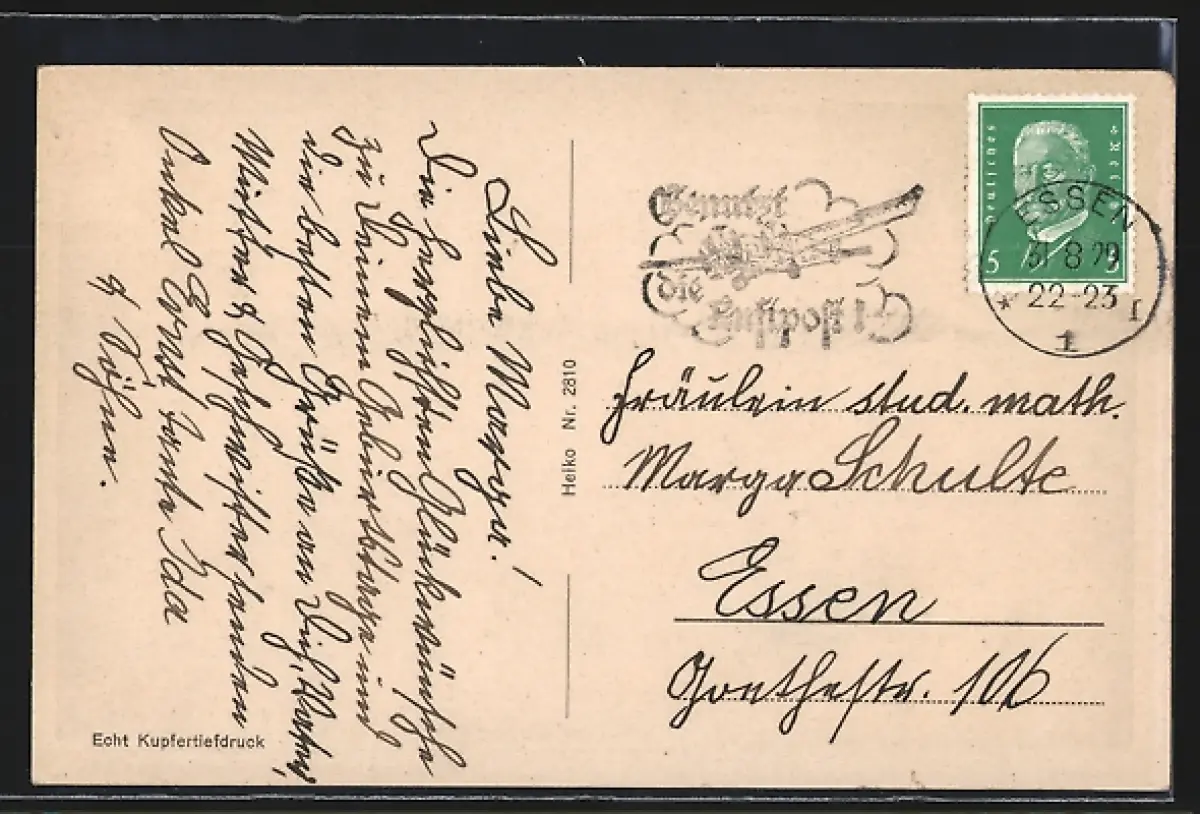 Liebe Marga!
Die herzlichsten Glückwünsche
zu Deinem Geburtstage und
die besten Grüße an Dich, Vater,
Mutter & Geschwister senden
Onkel Ernst Tante Ida
& Söhne.
Echt Kupfertiefdruck
Heiko Nr. 2810
Benutzt
die
Luftpost!
Deutsches Reich
5 5
ESSEN
31 8 29
22-23
* 1 I
Fräulein stud. math.
Marga Schulte
Essen
Goethestr. 106